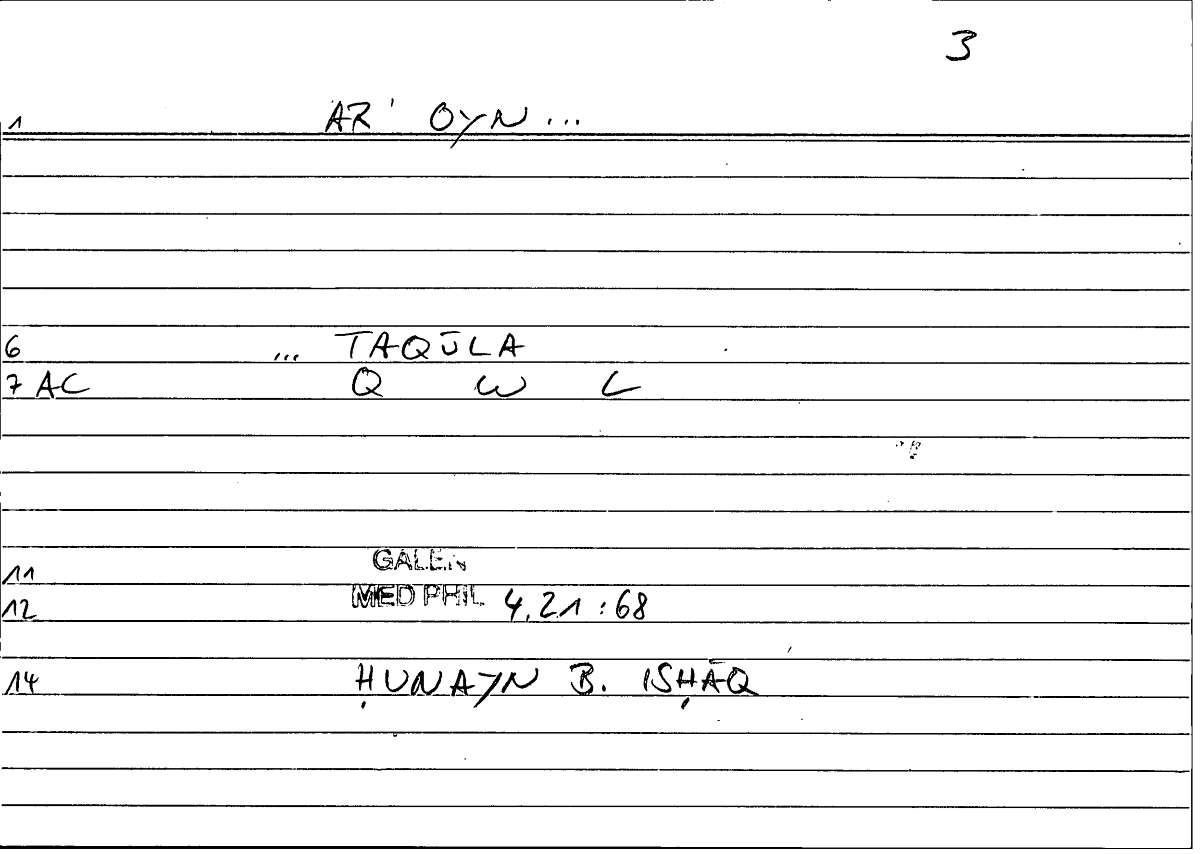 3
1 AR' OYN ...
6 ... TAQŪLA
7 AC Q W L
11 GALEN
12 MED PHIL 4,21 : 68
14 ḤUNAYN B. ISḤĀQ